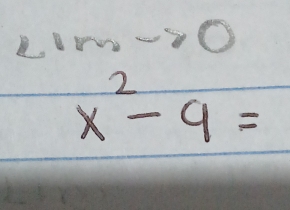 Lim -> 0
x² - 9 =